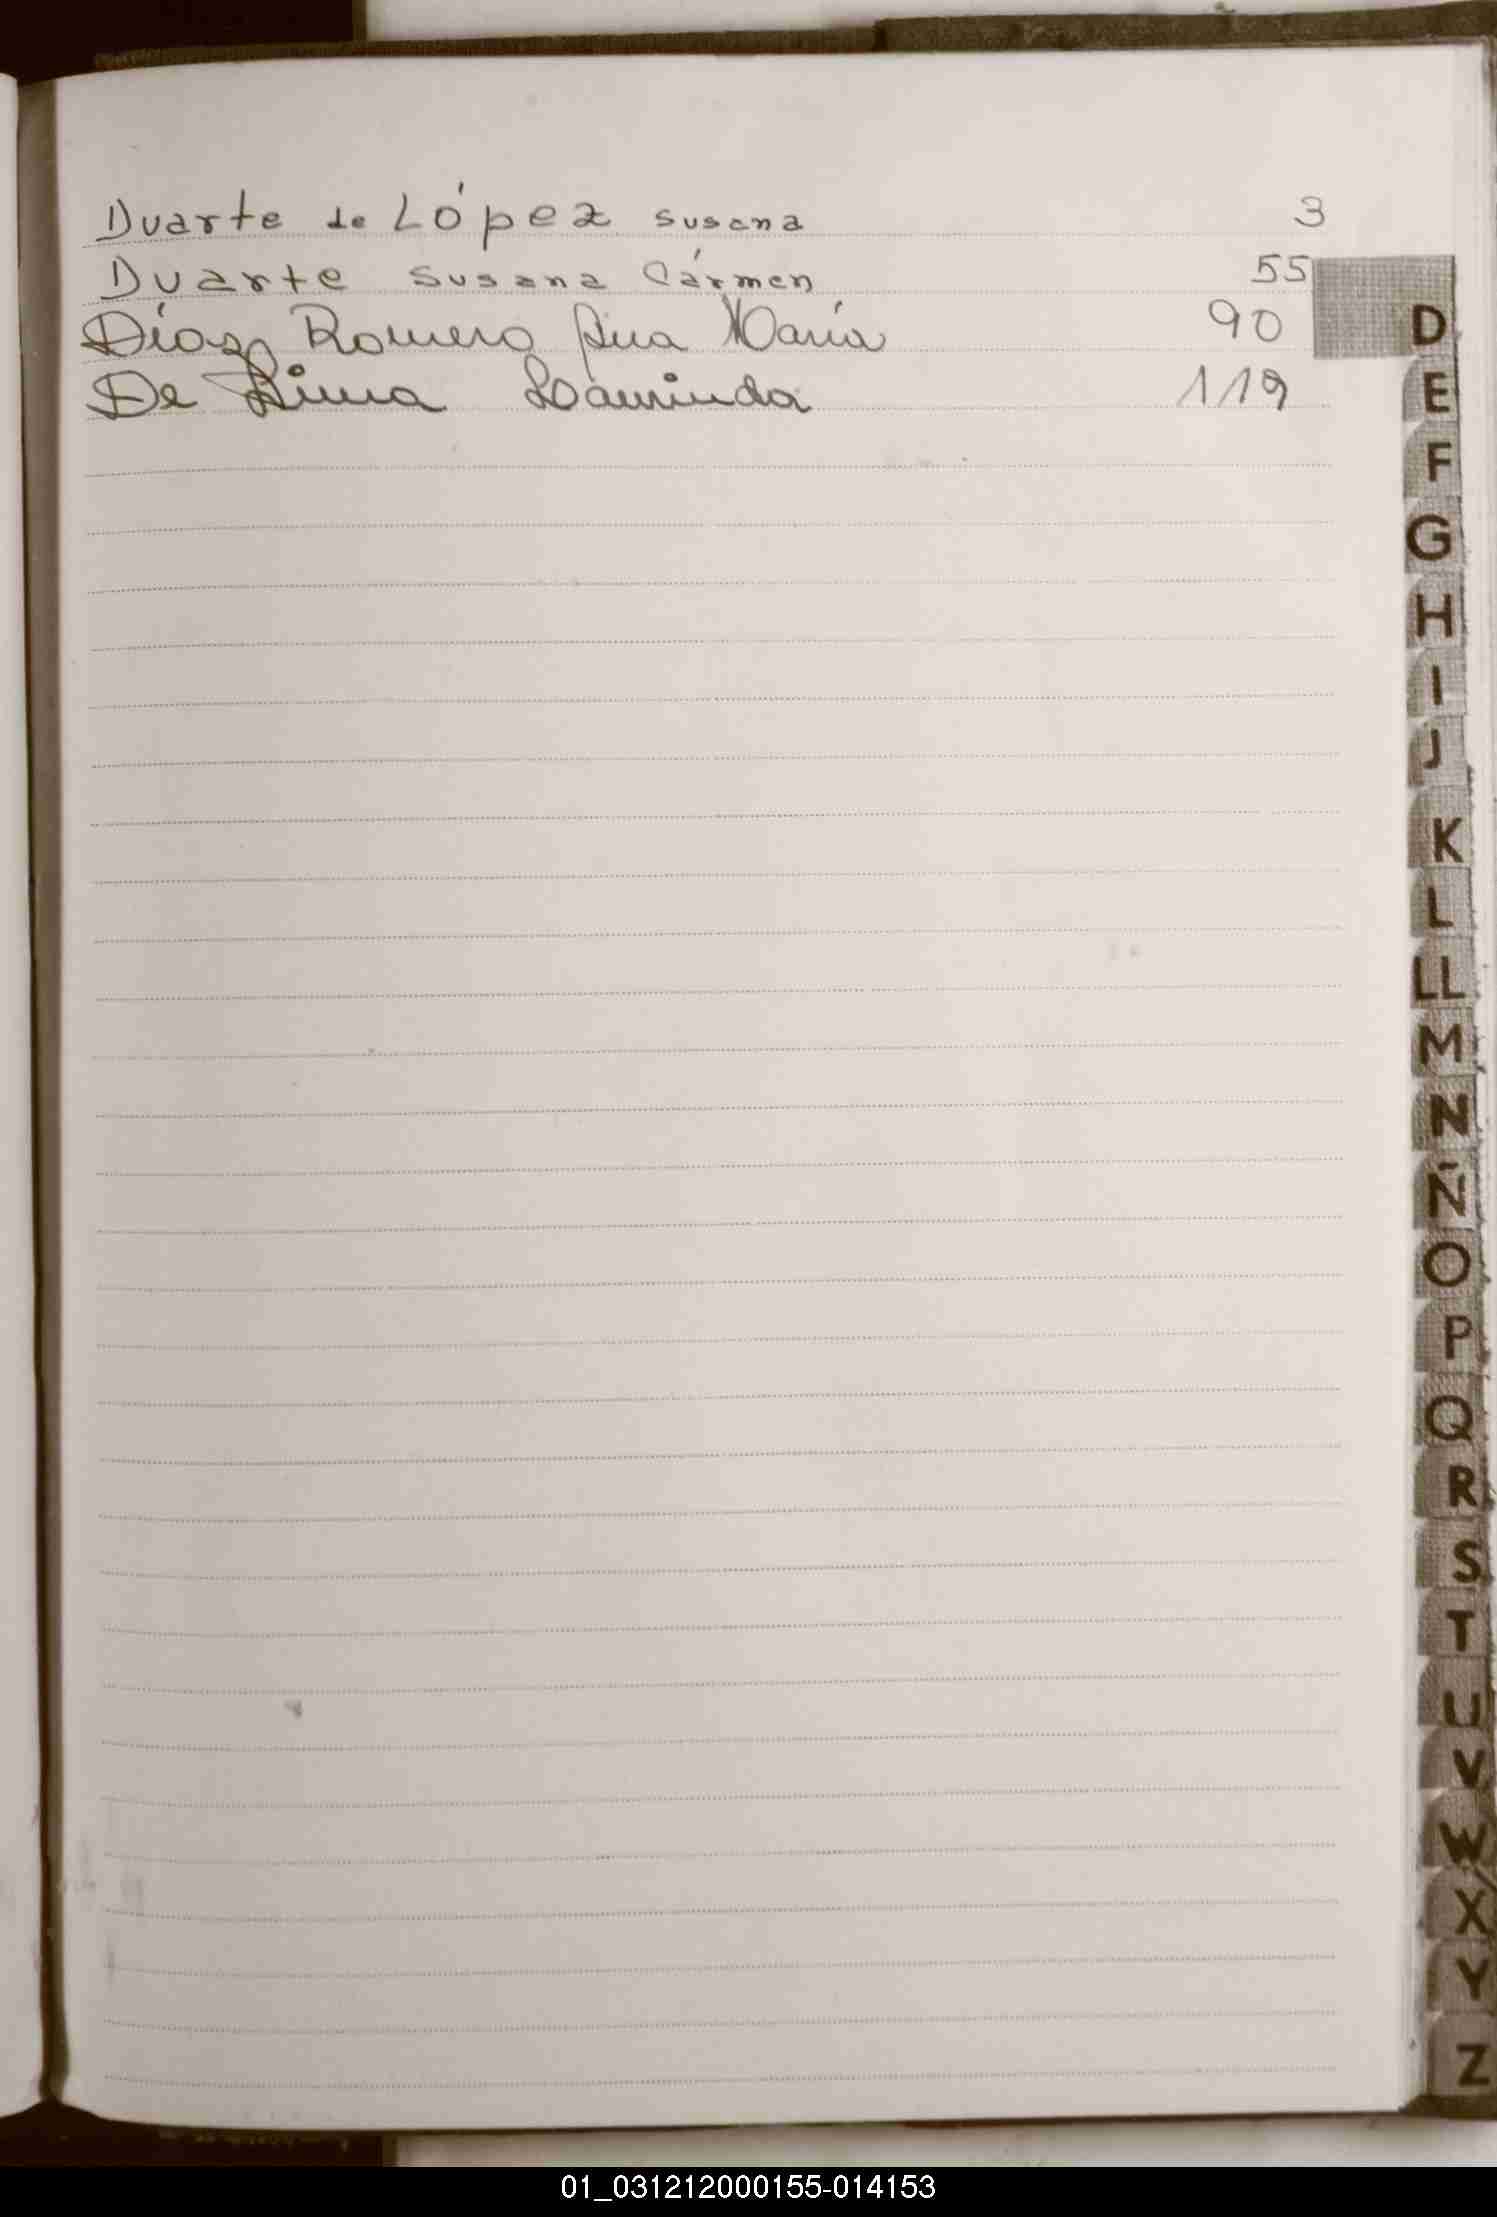 Duarte de López Susana 3
Duarte Susana Cármen 55
Díaz Romero Ana María 90
De Lima 119
D
E
F
G
H
I
J
K
L
LL
M
N
Ñ
O
P
Q
R
S
T
U
V
W
X
Y
Z
01_031212000155-014153